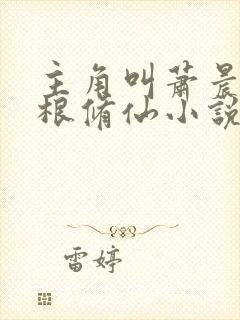 主角叫萧晨
根脩仙小說
雷婷